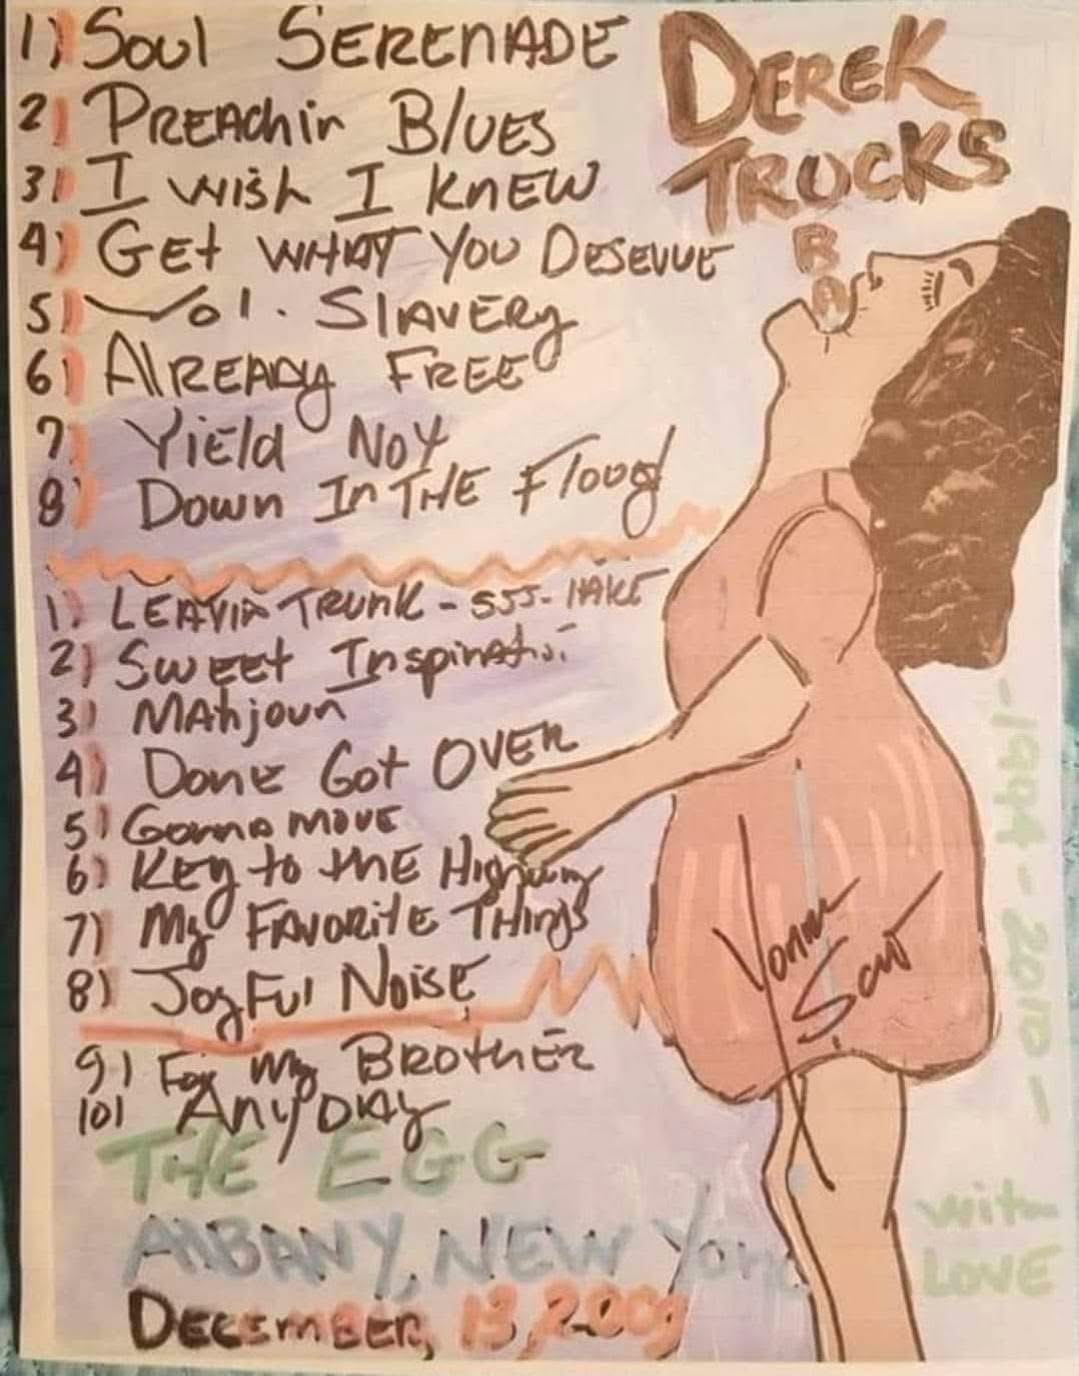 1) SOUL SERENADE
2) PREACHin BLUES
3) I WiSh I KNEW
4) GEt WHAT YOU DESEVVE
5) Vol. SLAVERy
6) AlREADy FREE
7) YiElD NOY
8) DOWN In THE Flood
1) LEAVIN TRUNK - SSJ - 
2) SWEEt Inspiratio.
3) MAhjoun
4) DONE GOt OVER
5) Gonna MOVE
6) KEy to thE Highway
7) My FAVORitE THings
8) JoyFul NOiSE
9) For My BROthER
10) AnyDAy
THE EGG
ALBANY, NEW YORK
DECEMBER, 13, 2009
DEREK
TRUCKS
BA
-1994-2010-
with
LOVE